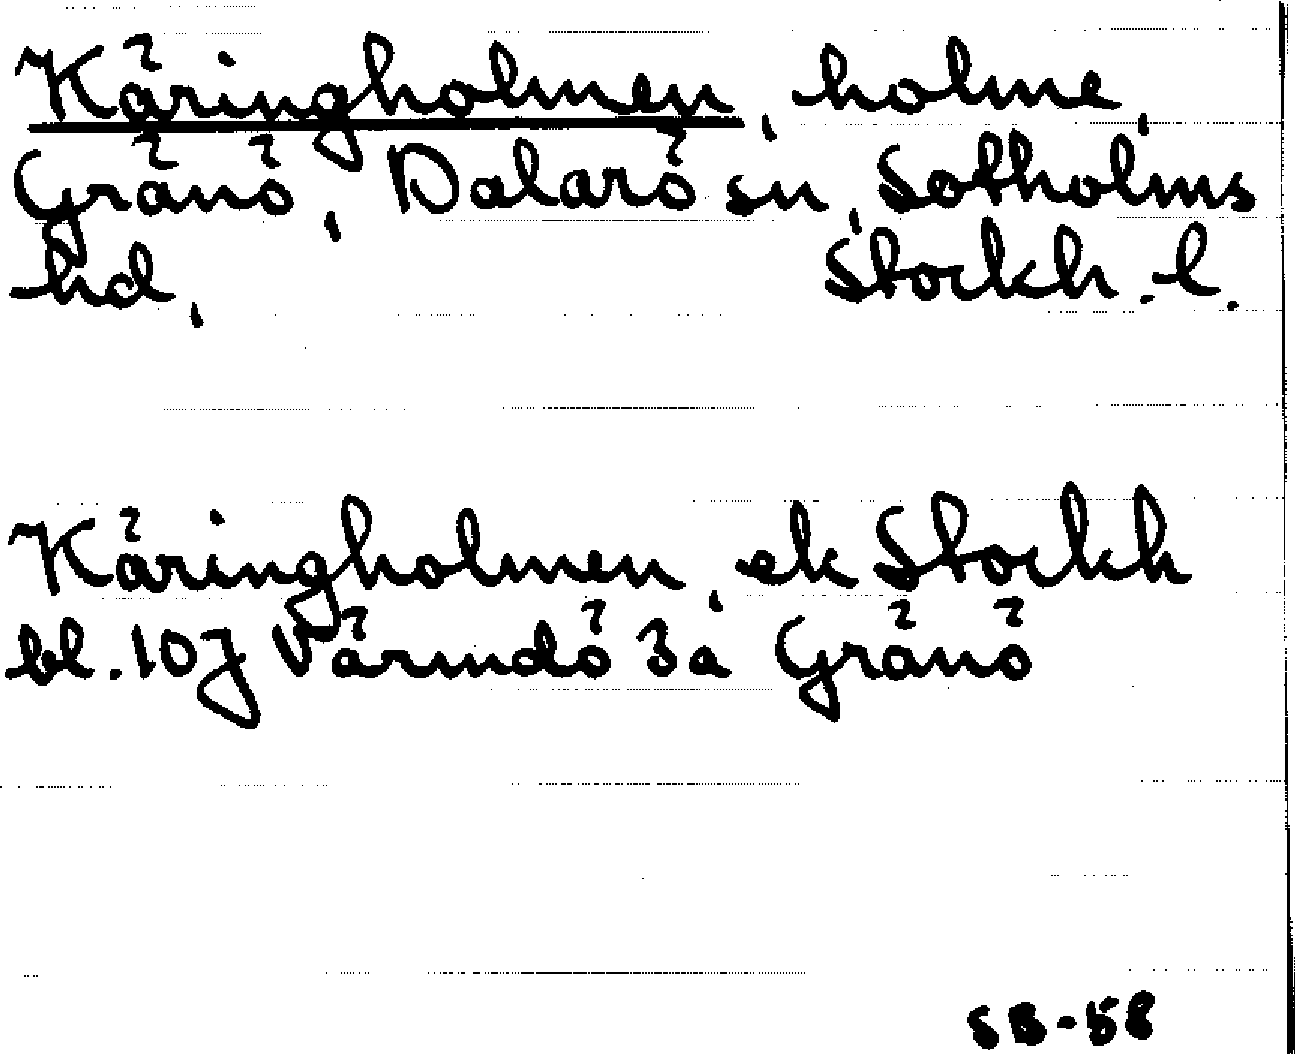 Käringholmen, holme,
Gränö, Dalarö sn, Sotholms
hd, Stockh. l.
Käringholmen, ek Stockh
bl. 107 Värmdö 3a Gränö
SB-58